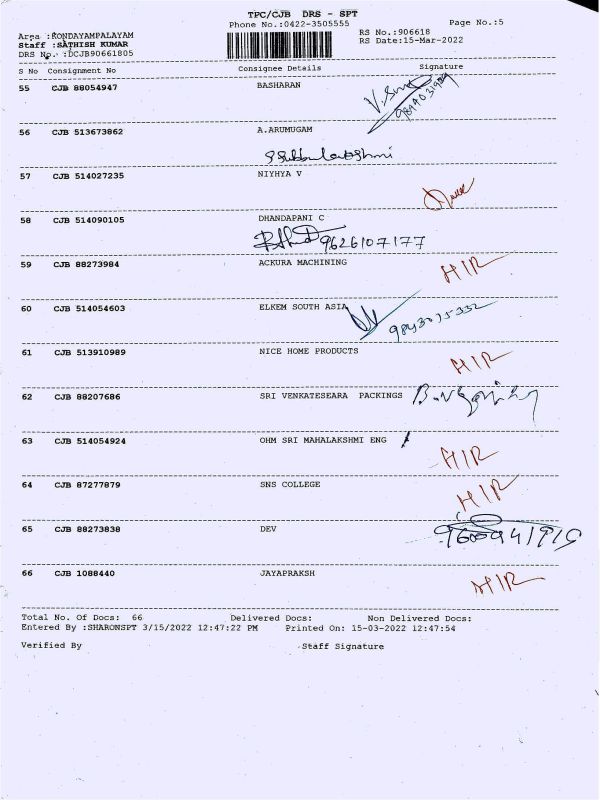 TPC/CJB DRS - SPT
Phone No.:0422-3505555
Page No.:5
Area :KONDAYAMPALAYAM
RS No.:906618
Staff :SATHISH KUMAR
RS Date:15-Mar-2022
DRS No. :DCJB90661805
S No Consignment No Consignee Details Signature
55 CJB 88054947 BASHARAN
56 CJB 513673862 A.ARUMUGAM
57 CJB 514027235 NIYHYA V
58 CJB 514090105 DHANDAPANI C
9626107177
59 CJB 88273984 ACKURA MACHINING
H/R
60 CJB 514054603 ELKEM SOUTH ASIA
9843075332
61 CJB 513910989 NICE HOME PRODUCTS
H/R
62 CJB 88207686 SRI VENKATESEARA PACKINGS
63 CJB 514054924 OHM SRI MAHALAKSHMI ENG
H/R
64 CJB 87277879 SNS COLLEGE
H/R
65 CJB 88273838 DEV
66 CJB 1088440 JAYAPRAKSH
H/R
Total No. Of Docs: 66 Delivered Docs: Non Delivered Docs:
Entered By :SHARONSPT 3/15/2022 12:47:22 PM Printed On: 15-03-2022 12:47:54
Verified By Staff Signature